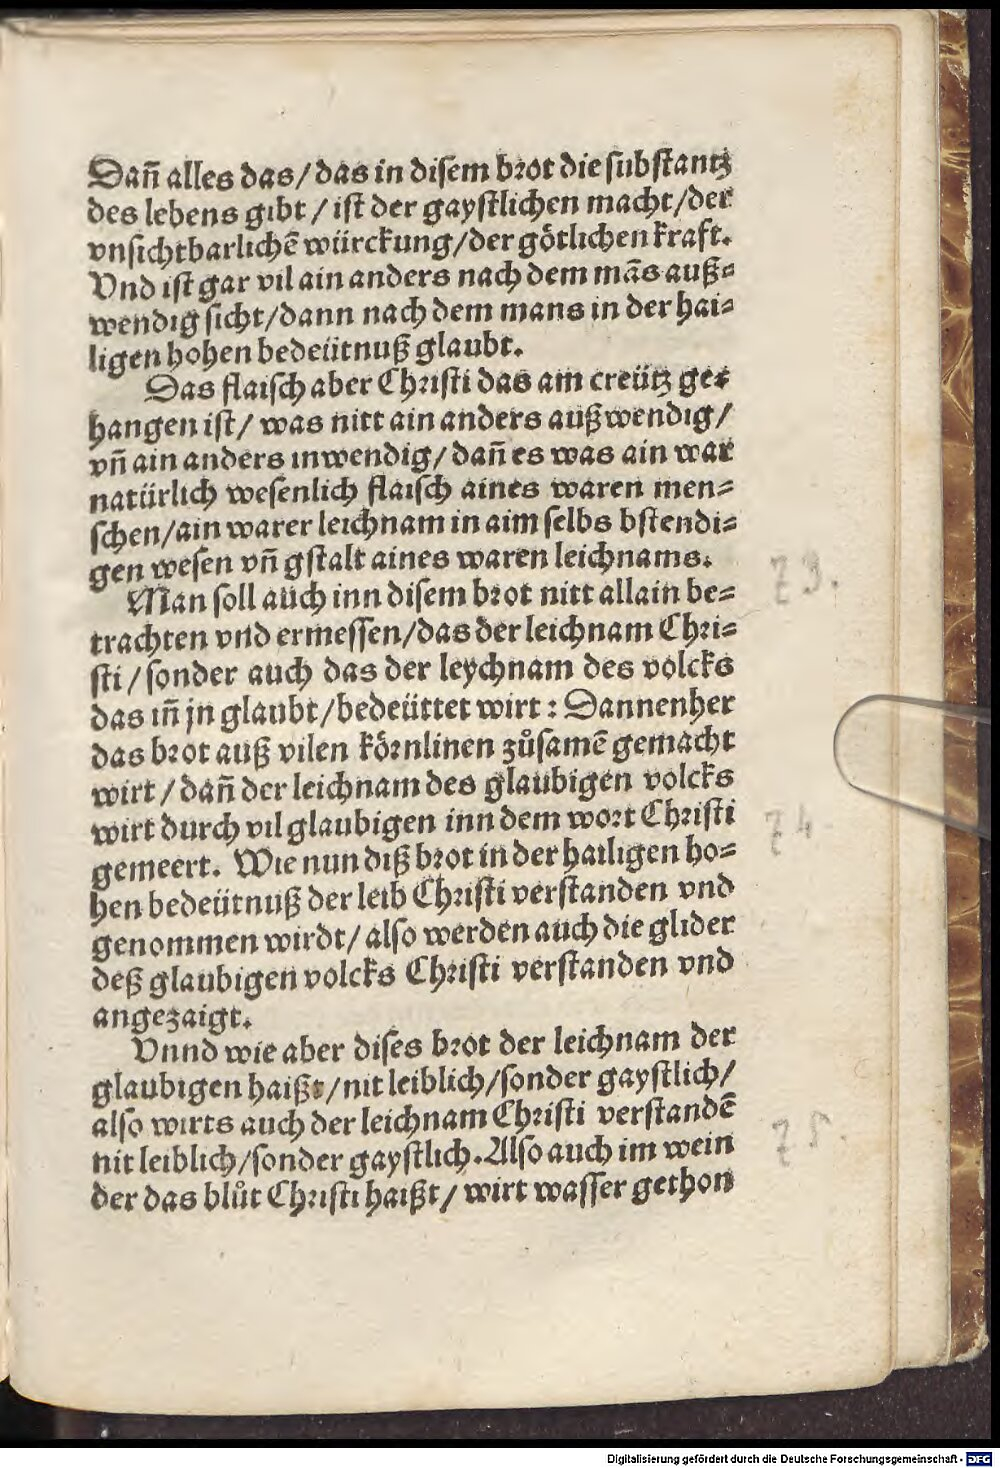 Dañ alles das/das in disem brot die substantz
des lebens gibt/ist der gaystlichen macht/der
vnsichtbarlichẽ würckung/der götlichen kraft.
Vnd ist gar vil ain anders nach dem mãs auß⸗
wendig sicht/dann nach dem mans in der hai⸗
ligen hohen bedeütnuß glaubt.
Das flaisch aber Christi das am creütz ge⸗
hangen ist/was nitt ain anders außwendig/
vñ ain anders inwendig/dañ es was ain war
natürlich wesenlich flaisch aines waren men⸗
schen/ain warer leichnam in aim selbs bstendi⸗
gen wesen vñ gstalt aines waren leichnams.
Man soll auch inn disem brot nitt allain be⸗
trachten vnd ermessen/das der leichnam Chri⸗
sti/sonder auch das der leychnam des volcks
das iñ jn glaubt/bedeüttet wirt: Dannenher
das brot auß vilen körnlinen zůsamẽ gemacht
wirt/dañ der leichnam des glaubigen volcks
wirt durch vil glaubigen inn dem wort Christi
gemeert. Wie nun diß brot in der hailigen ho⸗
hen bedeütnuß der leib Christi verstanden vnd
genommen wirdt/also werden auch die glider
deß glaubigen volcks Christi verstanden vnd
angezaigt.
Vnnd wie aber dises brot der leichnam der
glaubigen haißt/nit leiblich/sonder gaystlich/
also wirts auch der leichnam Christi verstandẽ
nit leiblich/sonder gaystlich. Also auch im wein
der das blůt Christi haißt/wirt wasser gethon
73.
74.
75.
Digitalisierung gefördert durch die Deutsche Forschungsgemeinschaft - DFG